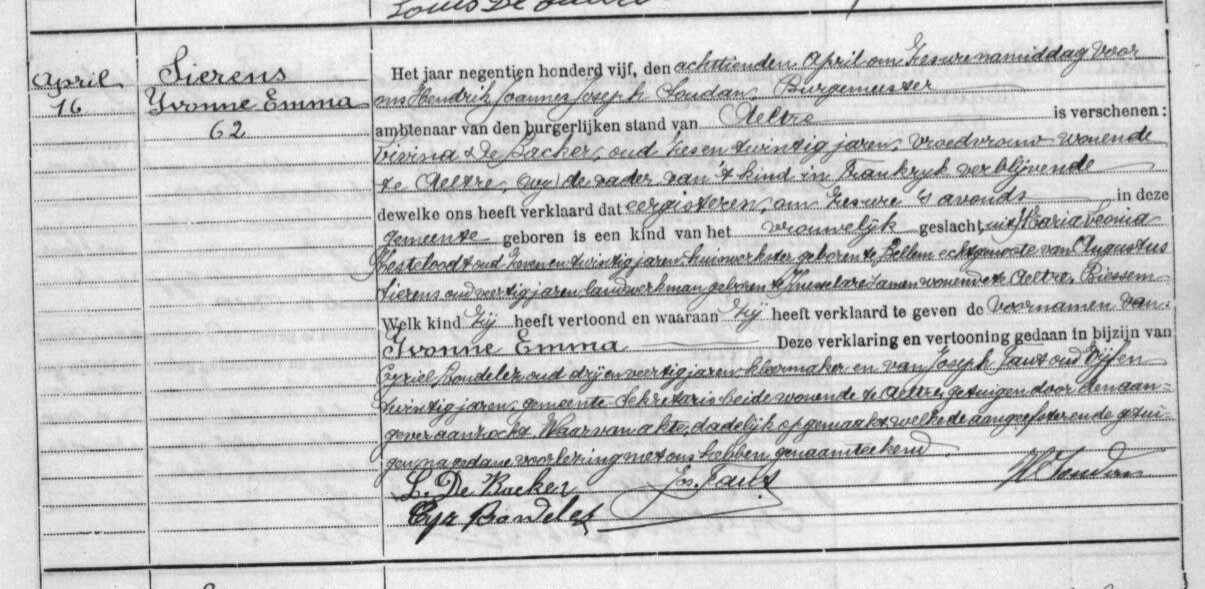 Louis De
April
16
Sierens
Yvonne Emma
62
Het jaar negentien honderd vijf, den achttienden April om zes ure namiddag voor
ons Hendrik Joannes Joseph Soudan, Burgemeester
ambtenaar van den burgerlijken stand van Aeltre is verschenen:
De Backer, oud zes en twintig jaren, vroedvrouw wonende
te Aeltre, (wy) de vader van 't kind in Frankryk verblijvende
dewelke ons heeft verklaard dat eergisteren, om zes ure 's avonds in deze
gemeente geboren is een kind van het vrouwelijk geslacht, uit Maria Leonia
Hesteloodt oud zeven en twintig jaren huiswerkster geboren te Bellem echtgenoote van Augustus
Sierens oud veertig jaren landwerkman geboren te Knesselare samen wonende te Aeltre, Biesem
Welk kind zij heeft vertoond en waaraan zij heeft verklaard te geven de voornamen van:
Yvonne Emma Deze verklaring en vertooning gedaan in bijzijn van
Cyriel Bondelez oud drij en veertig jaren kleermaker en van Joseph Faut oud vijf en
twintig jaren, gemeente-sekretaris beide wonende te Aeltre, getuigen door den aan-
gever aanzocht. Waarvan akte, dadelijk opgemaakt, welke de aangeefster en de getui-
gen na gedane voorlezing met ons hebben genaamteekend.
L. De Backer Jos. Faut H Soudan
Cyr Bondelez